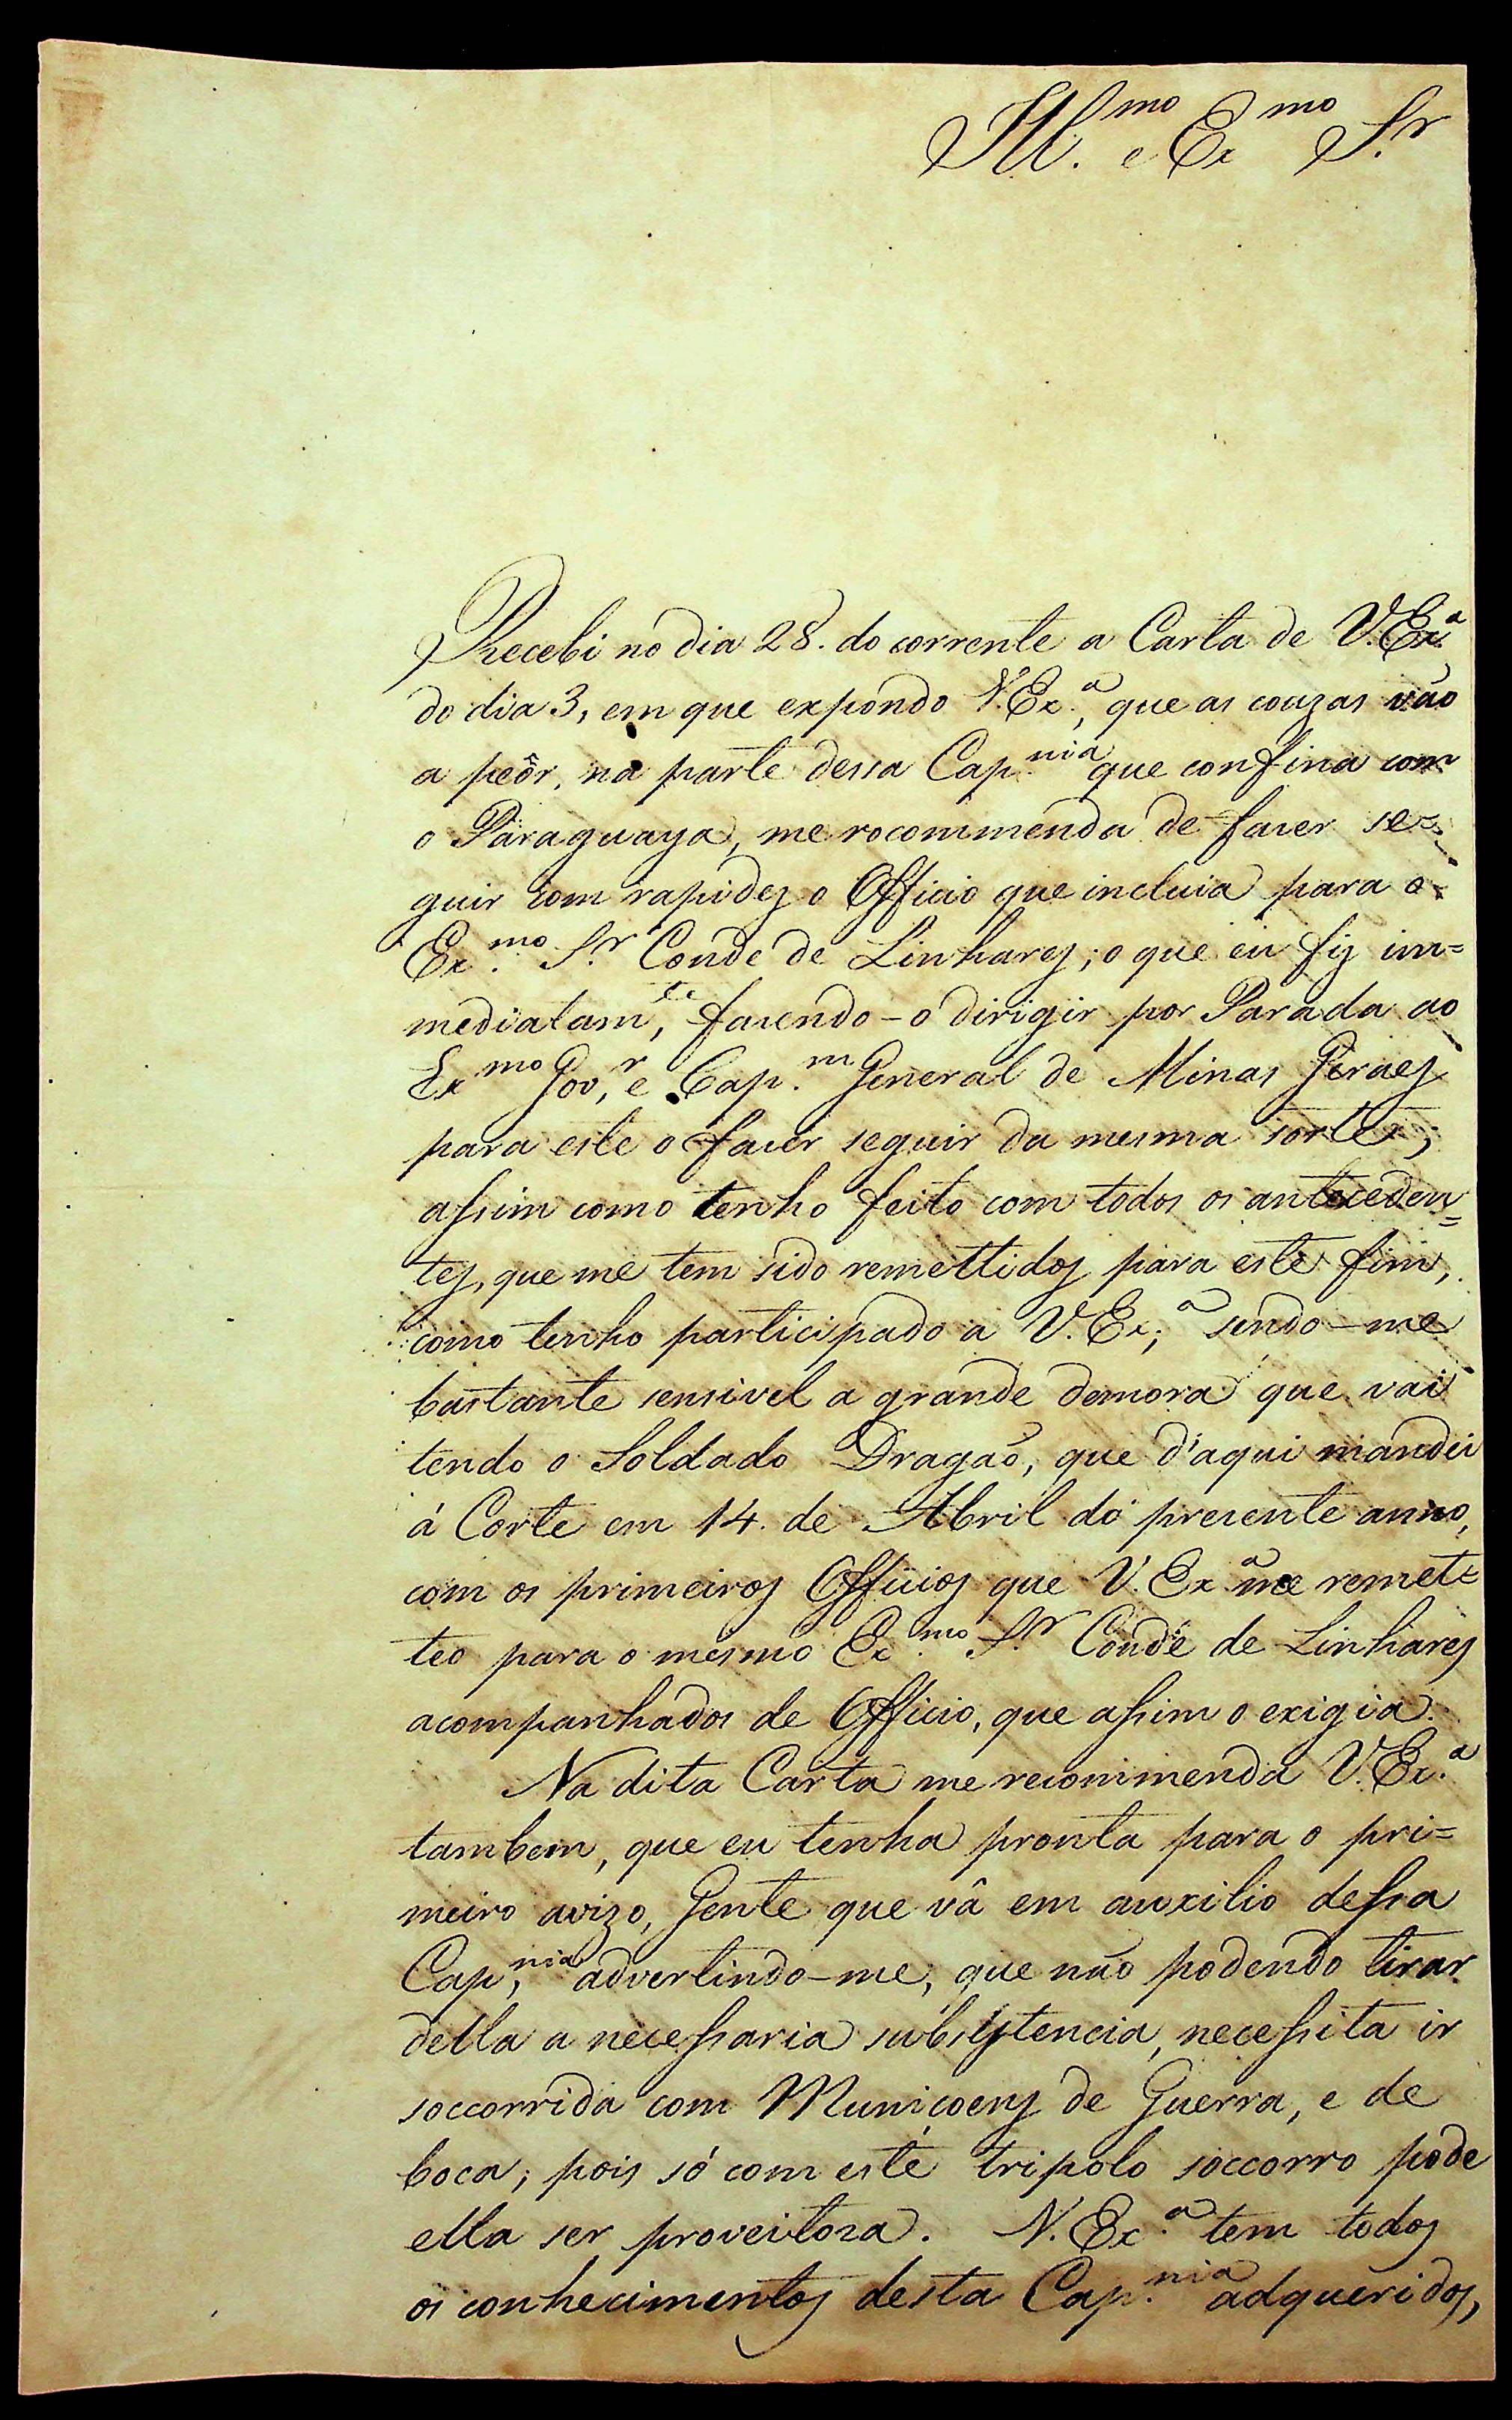 Ill.mo e Ex.mo S.r
Recebi no dia 28. do corrente a Carta de V. Ex.a
do dia 3, em que expondo V. Ex.a, que as couzas vão
a peôr, na parte dessa Cap.nia que confina com
o Paraguaya, me rocommenda de facer se=
guir com rapidez o Officio que incluia para o
Ex.mo S.r Conde de Linhares; o que eu fiz im=
mediatam.te, facendo-o dirigir por Parada ao
Ex.mo Gov.r, e Cap.m General de Minas Geraes
para este o facer seguir da mesma sorte;
assim como tenho feito com todos os anteceden=
tes, que me tem sido remettidos para este fim,
como tenho participado a V. Ex.a; sendo-me
bastante sensivel a grande demora que vai
tendo o Soldado Dragão, que d'aqui mandei
á Corte em 14. de Abril do presente anno,
com os primeiros Officios que V. Ex.a me remet=
teo para o mesmo Ex.mo S.r Conde de Linhares
acompanhados de Officio, que assim o exigia.
Na dita Carta me recommenda V. Ex.a
tambem, que eu tenha pronta para o pri=
meiro avizo, Gente que vâ em auxilio dessa
Cap.nia, advertindo-me, que não podendo tirar
della a necessaria subsistencia, necessita ir
soccorrida com Municoens de Guerra, e de
boca; pois só com este tripolo soccorro pode
ella ser proveitoza. V. Ex.a tem todos
os conhecimentos desta Cap.nia adqueridos,